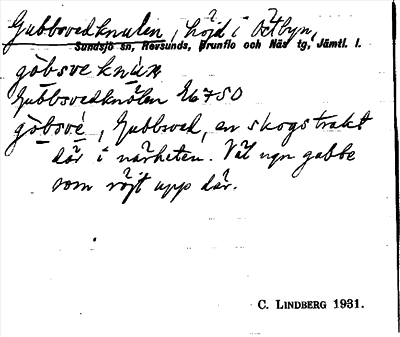 Gubbsvedknulen, höjd i Östbyn,
Sundsjö sn, Revsunds, Brunflo och Näs tg, Jämtl. l.
göbsve knúɴ
Gubbsvedknölen E6750
göbsvé, Gubbsved, en skogstrakt
där i närheten. Väl ngn gubbe
som röjt upp där.
C. LINDBERG 1931.